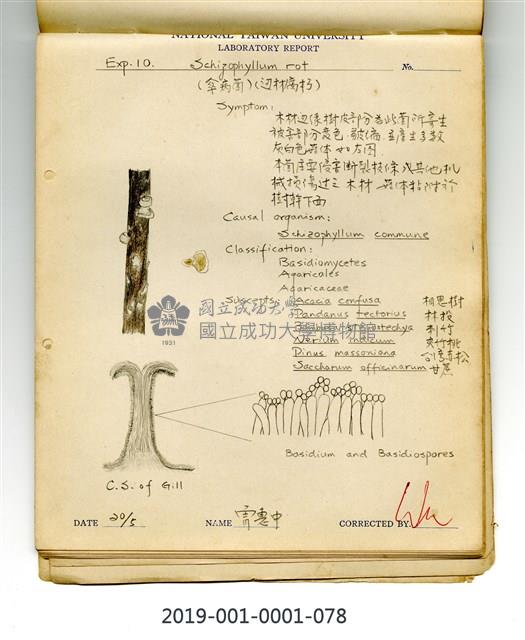 NATIONAL TAIWAN UNIVERSITY
LABORATORY REPORT
Exp. 10. Schizophyllum rot No.
(傘病菌)(辺材腐朽)
Symptom:
木材边像樹皮部分為此菌所寄生
被害部分变色.皺縮.並產生多数
灰白色菌体如左图.
本菌主要侵害断裂枝條及其他机
械损傷过之木材
樹幹下面
Causal organism:
Schizophyllum commune
Classification:
Basidiomycetes
Agaricales
Agaricaceae
Suscepts: Acacia confusa 相思樹
Pandanus tectorius 林投
刺竹
Nerium indicum 夾竹桃
Pinus massoniana 台湾赤松
Saccharum officinarum 甘蔗
國立成功大學
國立成功大學博物館
1931
Basidium and Basidiospores
C.S. of Gill
DATE 20/5 NAME CORRECTED BY
2019-001-0001-078